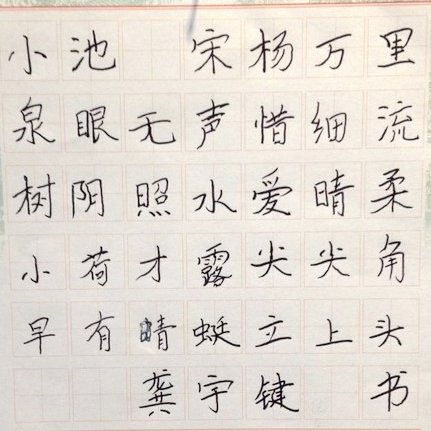 小池 宋杨万里
泉眼无声惜细流
树阴照水爱晴柔
小荷才露尖尖角
早有晴蜓立上头
龚宇键 书